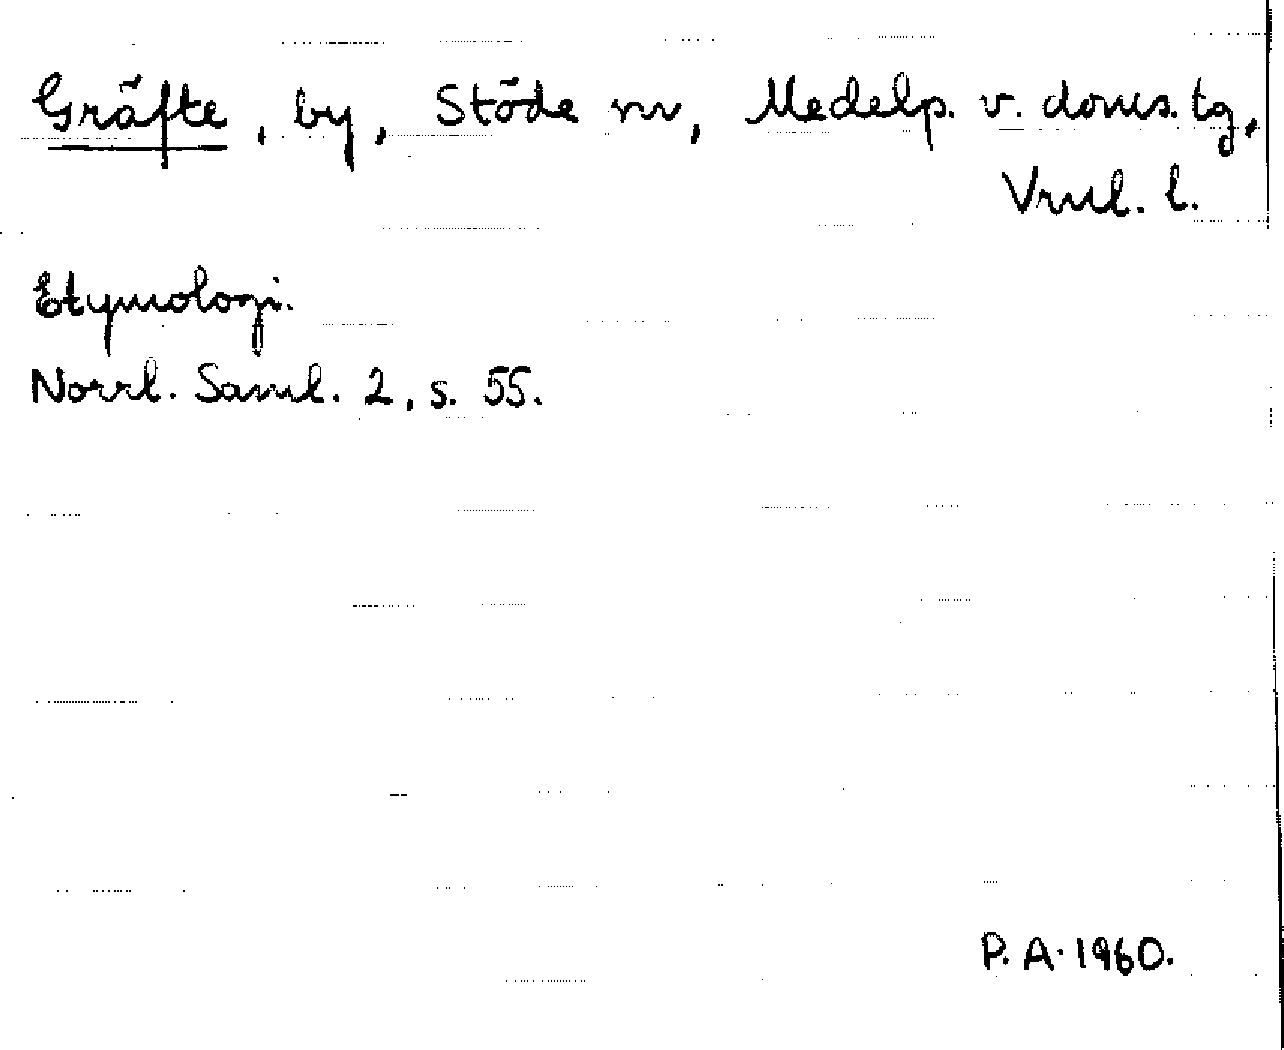 Gräfte, by, Stöde sn, Medelp. v. doms.tg,
Vrnl. l.
Etymologi.
Norrl. Saml. 2, s. 55.
P. A. 1960.